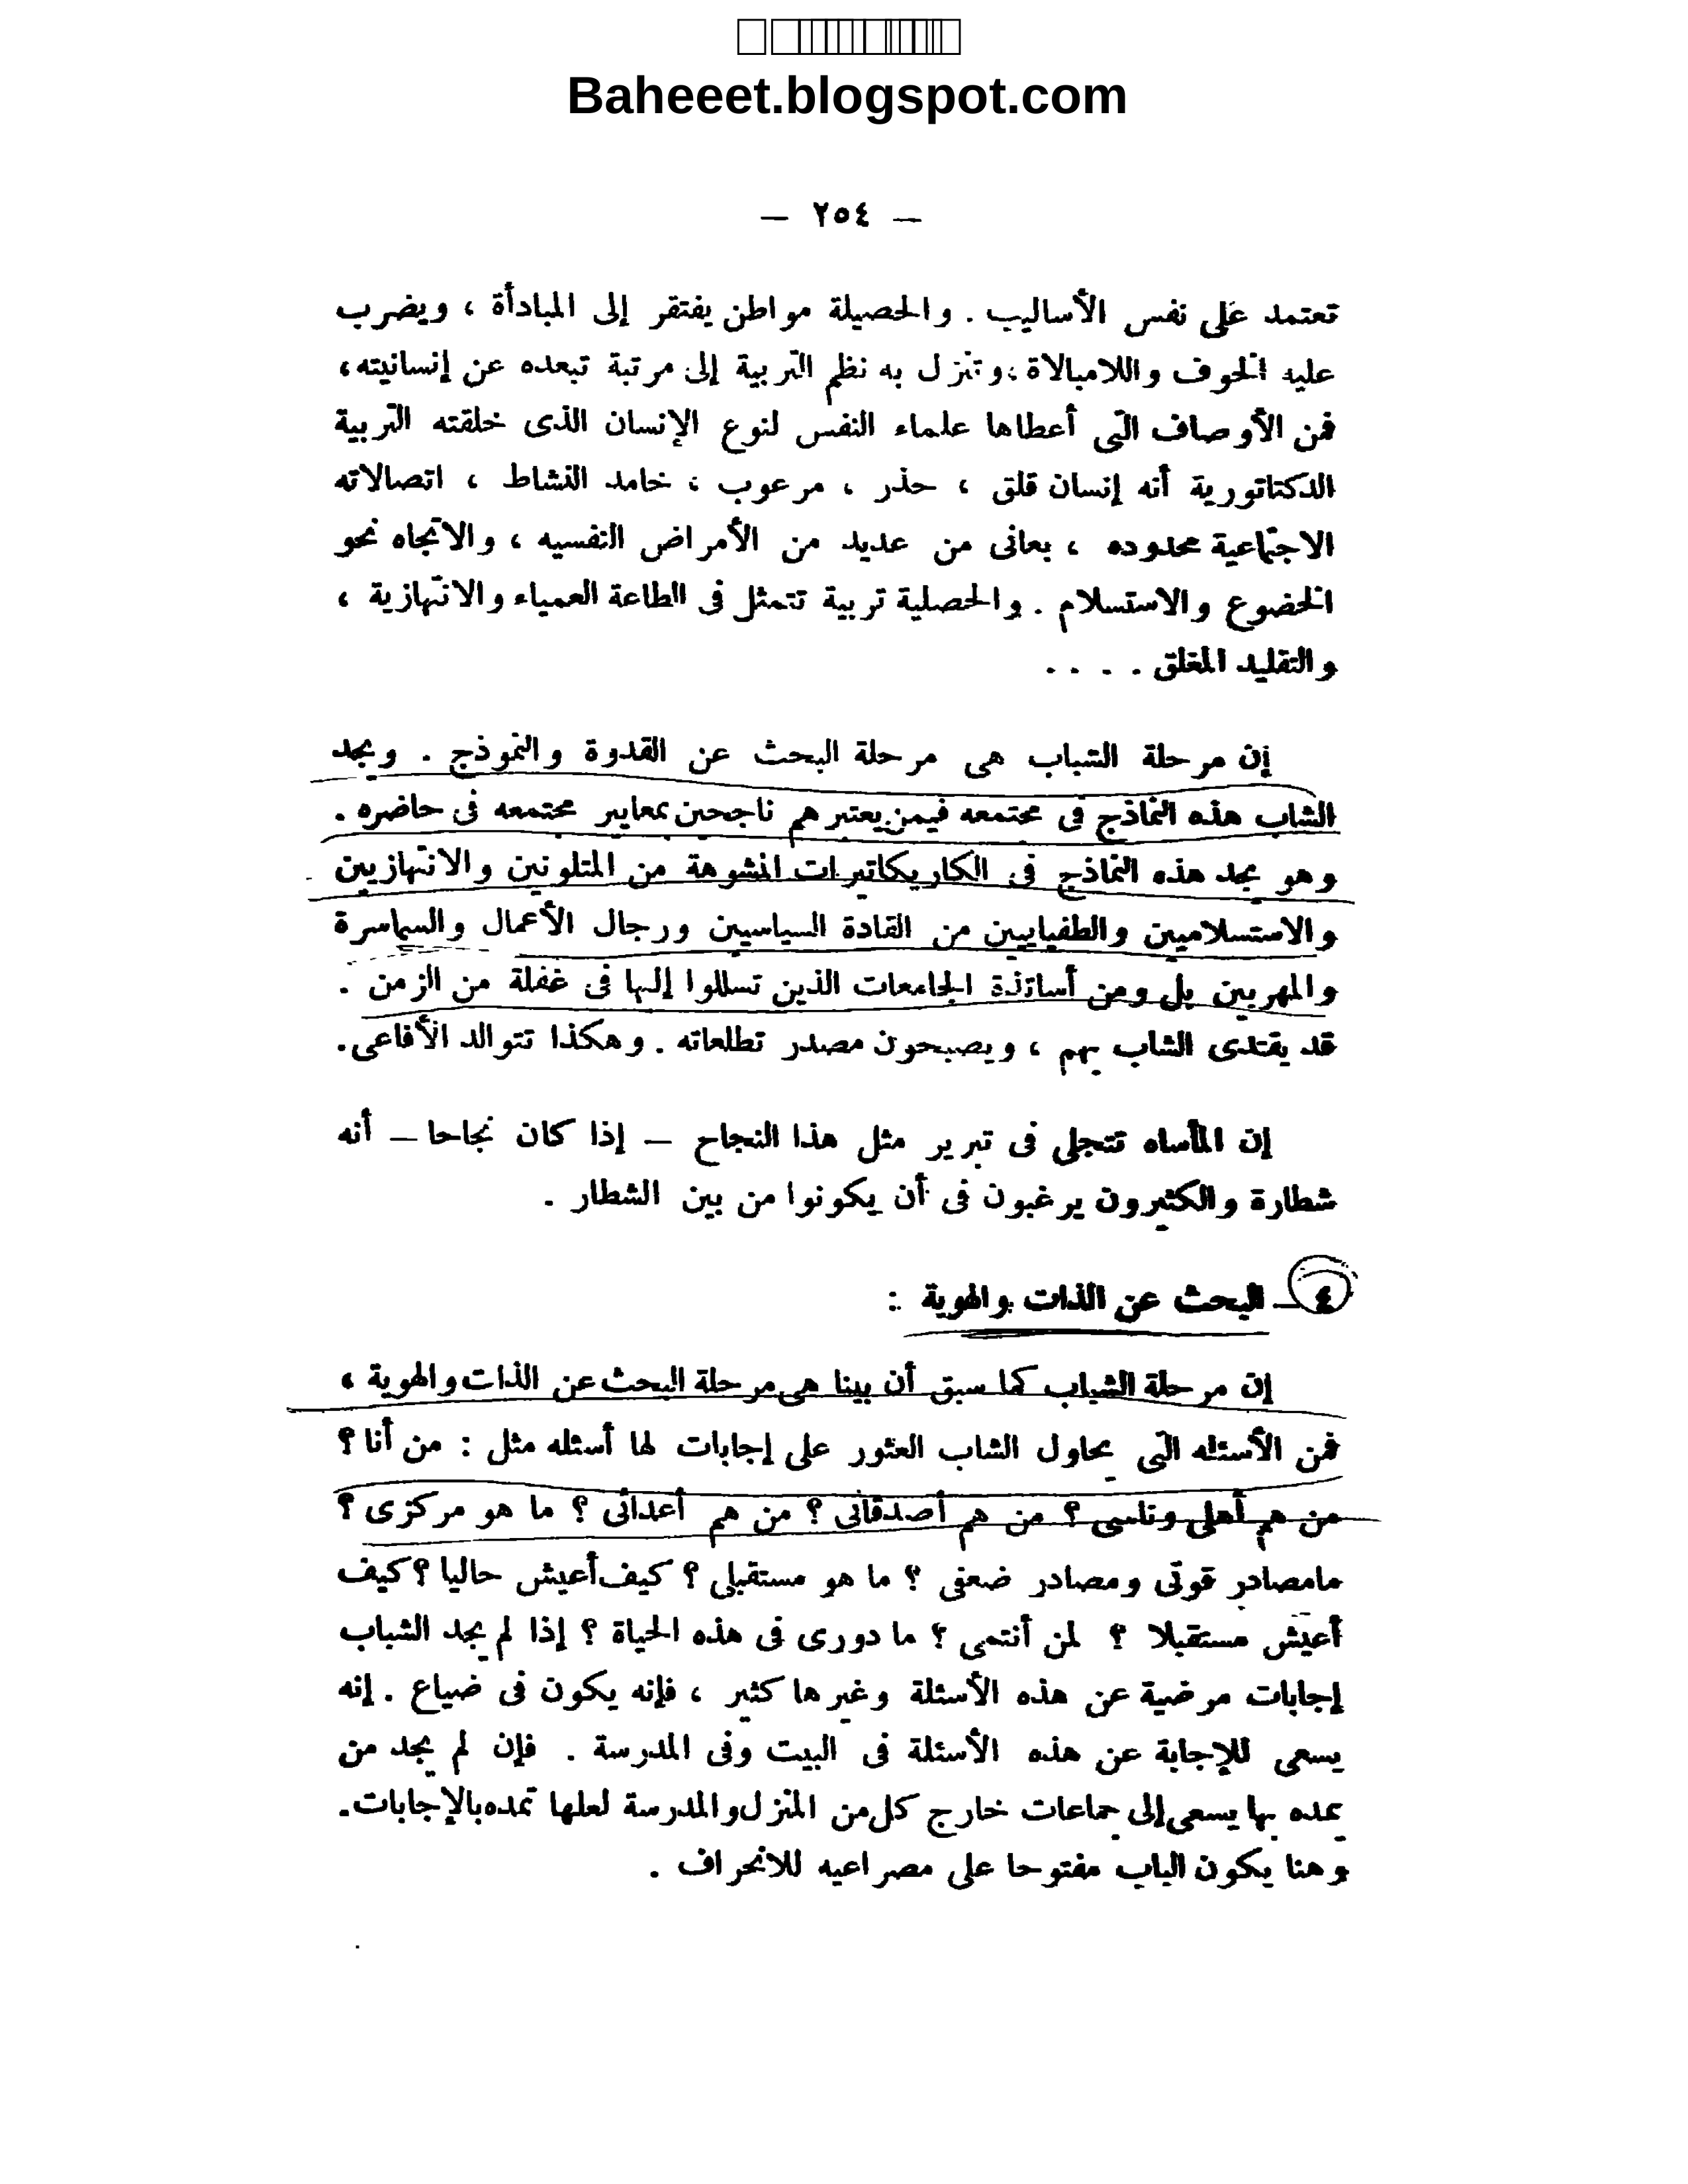 Baheeet.blogspot.com
— ٢٥٤ —
تعتمد على نفس الأساليب . والحصيلة مواطن يفتقر إلى المبادأة ، ويضرب
عليه الخوف واللامبالاة ، وتنزل به نظم التربية إلى مرتبة تبعده عن إنسانيته ،
فمن الأوصاف التى أعطاها علماء النفس لنوع الإنسان الذى خلقته التربية
الدكتاتورية أنه إنسان قلق ، حذر ، مرعوب ، خامد النشاط ، اتصالاته
الاجتماعية محدوده ، بعانى من عديد من الأمراض النفسيه ، والاتجاه نحو
الخضوع والاستسلام . والحصلية تربية تتمثل فى الطاعة العمياء والانتهازية ،
والتقليد المغلق . . . .
إن مرحلة الشباب هى مرحلة البحث عن القدوة والنموذج . ويجد
الشاب هذه النماذج فى مجتمعه فيمن يعتبرهم ناجحين بمعايير مجتمعه فى حاضره .
وهو يجد هذه النماذج فى الكاريكاتيرات المشوهة من المتلونين والانتهازيين
والاستسلاميين والطفيايين من القادة السياسيين ورجال الأعمال والسماسرة
والمهربين بل ومن أساتذة الجامعات الذين تسللوا إليها فى غفلة من الزمن .
قد يقتدى الشاب بهم ، ويصبحون مصدر تطلعاته . وهكذا تتوالد الأفاعى .
إن المأساه تتجلى فى تبرير مثل هذا النجاح — إذا كان نجاحا — أنه
شطارة والكثيرون يرغبون فى أن يكونوا من بين الشطار .
٤ — البحث عن الذات والهوية :
إن مرحلة الشباب كما سبق أن بينا هى مرحلة البحث عن الذات والهوية ،
فمن الأسئله التى يحاول الشاب العثور على إجابات لها أسئله مثل : من أنا ؟
من هم أهلى وناسى ؟ من هم أصدقائى ؟ من هم أعدائى ؟ ما هو مركزى ؟
مامصادر قوتى ومصادر ضعفى ؟ ما هو مستقبلى ؟ كيف أعيش حاليا ؟ كيف
أعيش مستقبلا ؟ لمن أنتمى ؟ ما دورى فى هذه الحياة ؟ إذا لم يجد الشباب
إجابات مرضية عن هذه الأسئلة وغيرها كثير ، فإنه يكون فى ضياع . إنه
يسعى للإجابة عن هذه الأسئلة فى البيت وفى المدرسة . فإن لم يجد من
يمده بها يسعى إلى جماعات خارج كل من المنزل والمدرسة لعلها تمده بالإجابات .
وهنا يكون الباب مفتوحا على مصراعيه للانحراف .